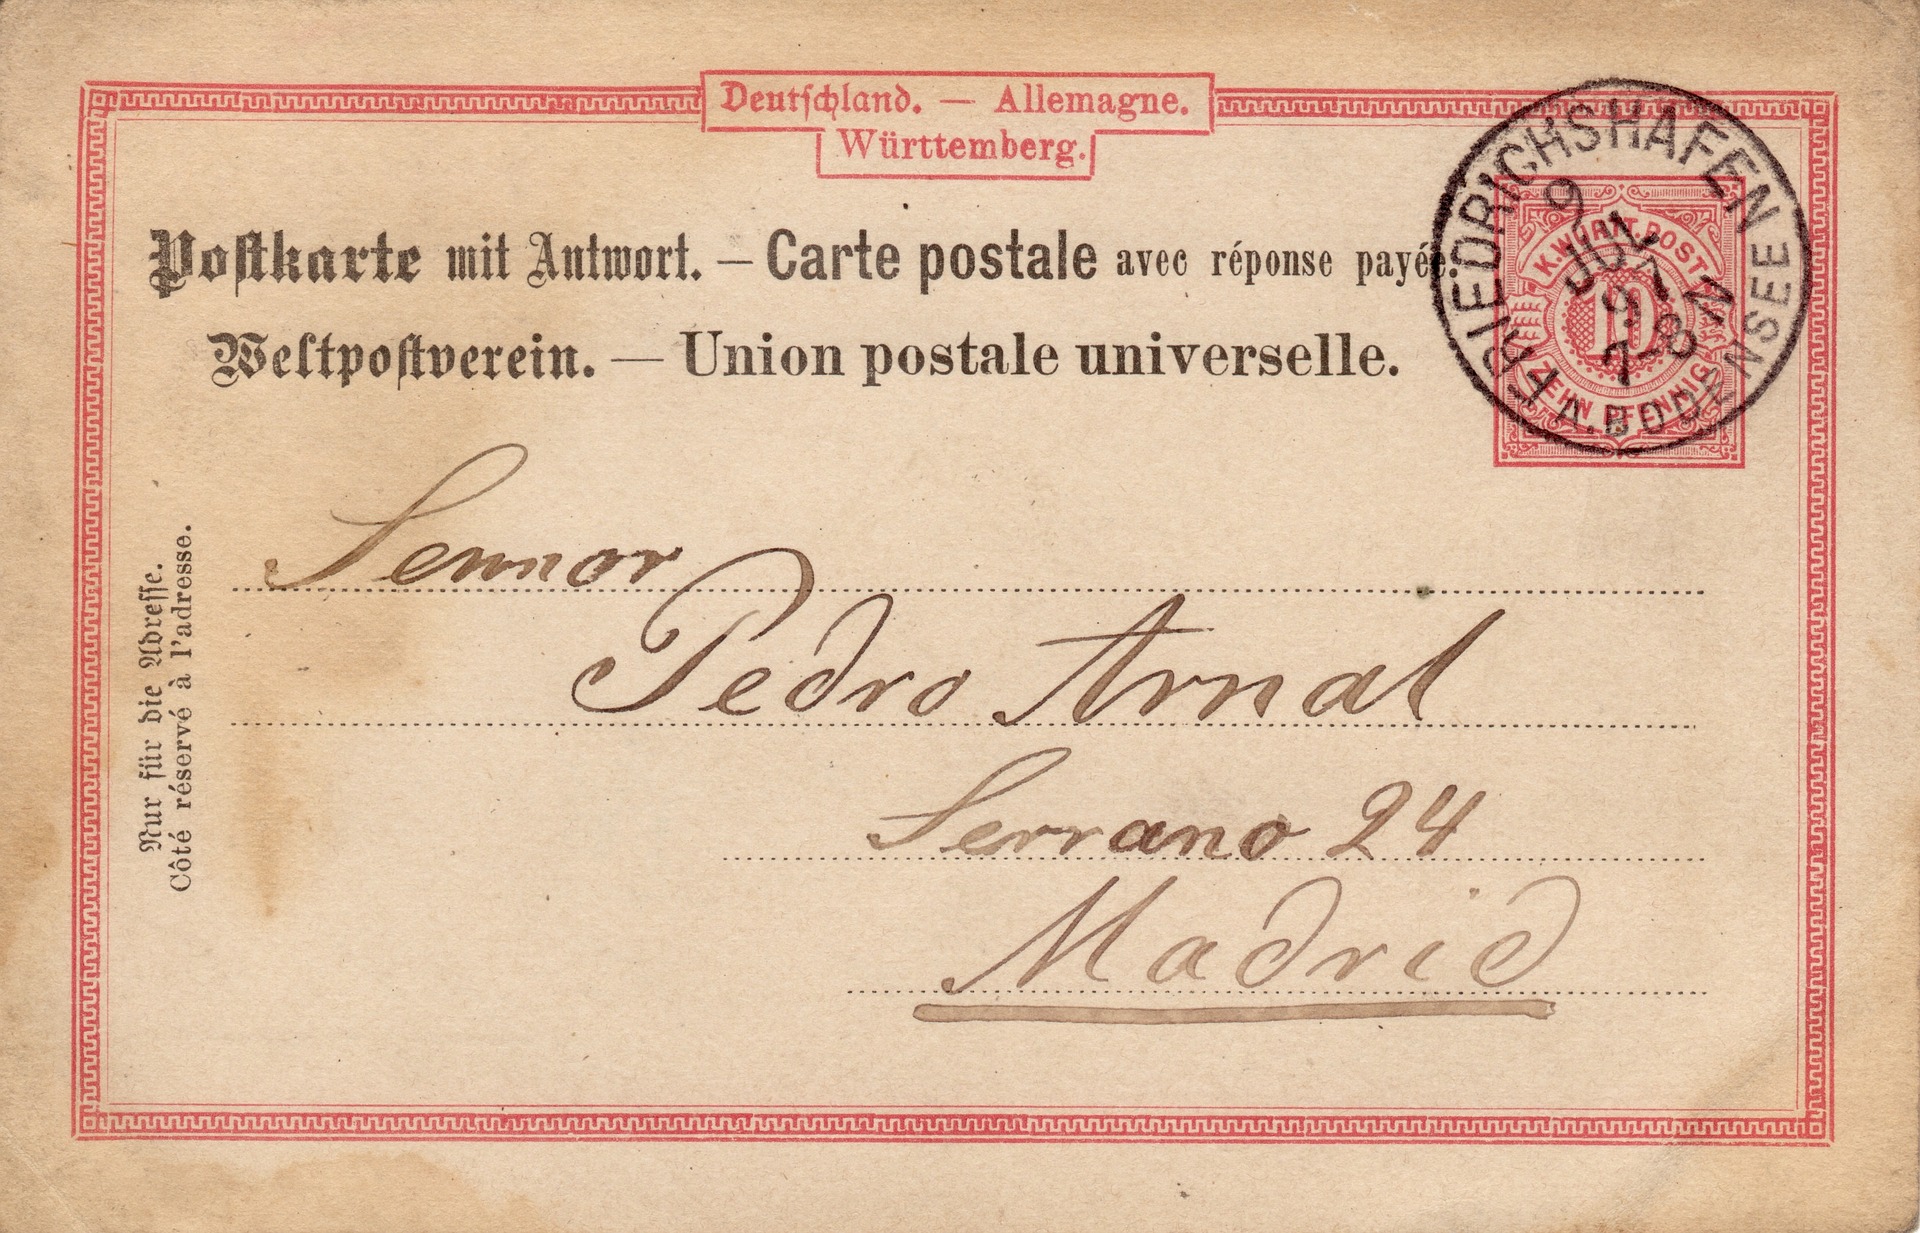 Deutschland. — Allemagne.
Württemberg.
Postkarte mit Antwort. — Carte postale avec réponse payée.
Weltpostverein. — Union postale universelle.
FRIEDRICHSHAFEN
9
JUL
97
7-8 N
A. BODENSEE
K. WÜRTT. POST
10
ZEHN PFENNIG
Nur für die Adresse.
Côté réservé à l'adresse.
Sennor
Pedro Arnal
Serrano 24
Madrid